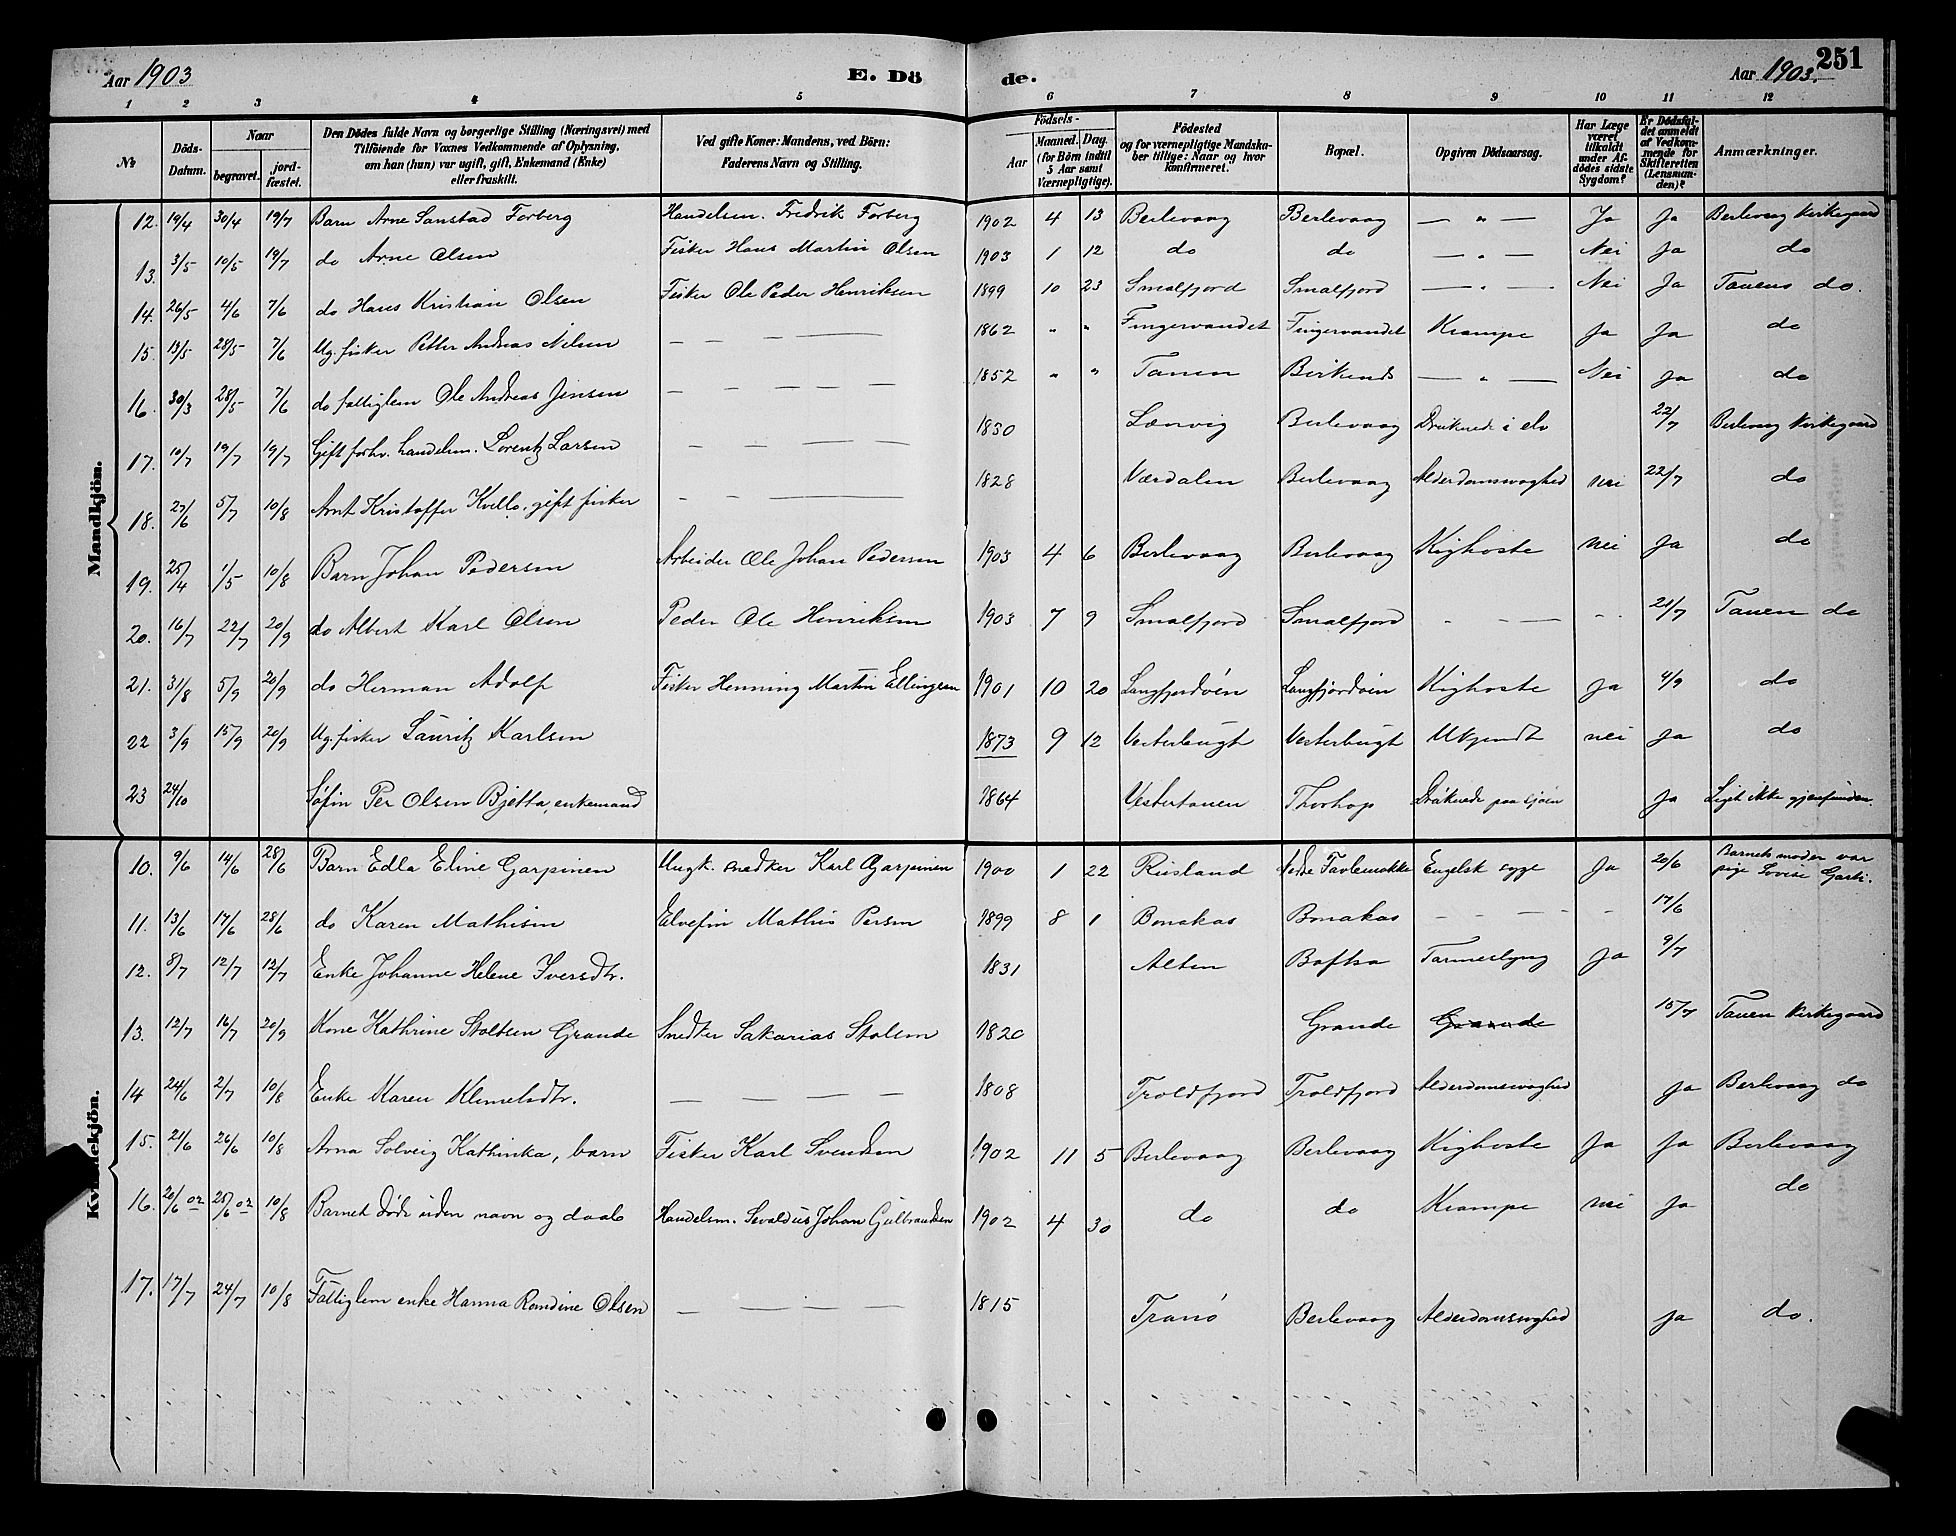 251
Aar 1903 E. Dö de. Aar 1903.
1 2 3 4 5 6 7 8 9 10 11 12
№ Döds-Datum. Naar begravet. jordfæstet. Den Dödes fulde Navn og borgerlige Stilling (Næringsvei) med Tilföiende for Voxnes Vedkommende af Oplysning, om han (hun) var ugift, gift, Enkemand (Enke) eller fraskilt. Ved gifte Koner: Mandens, ved Börn: Faderens Navn og Stilling. Födsels- Aar Maaned. Dag. (for Börn indtil 5 Aar samt Værnepligtige). Födested og for værnepligtige Mandskaber tillige: Naar og hvor konfirmeret. Bopæl. Opgiven Dödsaarsag. Har Læge været tilkaldt under Afdödes sidste Sygdom? Er Dödsfaldet anmeldt af Vedkommende for Skifteretten (Lensmanden)? Anmærkninger.
Mandkjön.
12. 19/4 30/4 19/7 Barn Arne Sanstad Forberg Handelsm. Fredrik Forberg 1902 4 13 Berlevaag Berlevaag — " — Ja Ja Berlevaag Kirkegaard
13. 3/5 10/5 19/7 do Arne Olsen Fisker Hans Martin Olsen 1903 1 12 do do — " — Nei Ja do
14. 26/5 4/6 7/6 do Hans Kristian Olsen Fisker Ole Peder Henriksen 1899 10 23 Smalfjord Smalfjord — " — Nei Ja Tanens do.
15. 19/5 28/5 7/6 Ug. fisker Petter Andreas Nilsen — — — — 1862 " " Fingervandet Fingervandet Krampe Ja Ja do
16. 30/3 28/5 7/6 do fattiglem Ole Andreas Jensen — — — — 1852 " " Tanen Birkends — " — Nei Ja do
17. 10/7 19/7 19/7 Gift forhv. handelsm. Lorentz Larsen — — — 1830 Lænvig Berlevaag Druknede i elv 22/7 Berlevaag Kirkegaard
18. 27/6 5/7 10/8 Arnt Kristoffer Kvello, gift fisker — — — 1828 Værdalen Berlevaag Alderdomsvaghed nei 22/7 do
19. 25/4 1/5 10/8 Barn Johan Pedersen Arbeider Ole Johan Pedersen 1903 4 6 Berlevaag Berlevaag Kighoste nei Ja do
20. 16/7 22/7 20/9 do Albert Karl Olsen Peder Ole Henriksen 1903 7 9 Smalfjord Smalfjord - - — - - 21/7 Tanen do
21. 31/8 5/9 20/9 do Herman Adolf Fisker Henning Martin Ellingsen 1901 10 20 Langfjordvén Langfjordvén Kighoste Ja 4/9 do
22 3/9 15/9 20/9 Ug. fisker Lauritz Karlsen 1873 9 12 Vesterbugt Vesterbugt Ukjendt nei Ja do
23 24/10 Søfin Per Olsen Bjetta, enkemand 1864 Vestertanen Thorhop Druknede paa sjøen Ja Liget ikke gjenfunden.
Kvindekjön.
10. 9/6 14/6 28/6 Barn Edla Eline Garpinen Ungk. snedker Karl Garpinen 1900 1 22 Rusland Engelsk syge Ja 20/6 Barnets moder var pige Lovise
11. 13/6 17/6 28/6 do Karen Mathisen Elvefin Mathis Persen 1899 8 1 Bonakas Bonakas - - - - - 17/6
12. 8/7 12/7 12/7 Enke Johanne Helene Iversdtr. 1831 Alten Boftsa Tarmeslyng Ja 9/7
13. 12/7 16/7 20/9 Kone Kathrine Stoltsen Grande Snedker Sakarias Stolsen 1820 Grande Grande 15/7 Tanen Kirkegaard
14 24/6 2/7 10/8 Enke Karen Klemetsdtr. — — — — 1808 Troldfjord Troldfjord Alderdomsvaghed Ja Berlevaag do
15. 21/6 26/6 10/8 Arna Solveig Kathinka, barn Fisker Karl Svendsen 1902 11 5 Berlevaag Berlevaag Kighoste Ja Ja Berlevaag
16. 20/6 02 25/6 02 10/8 Barnet døde uden navn og daab Handelsm. Sevaldus Johan Gulbrandsen 1902 4 30 do do Krampe nei Ja do
17. 17/7 24/7 10/8 Fattiglem enke Hanna Romdine Olsen — — — — 1815 Tranø Berlevaag Alderdomsvaghed Ja do.